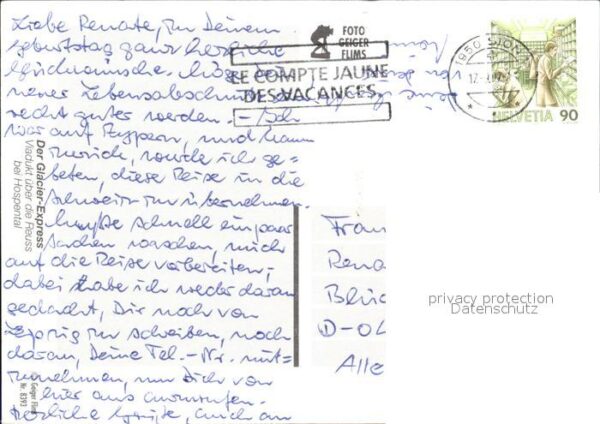 Liebe Renate, zu Deinem
Geburtstag ganz herzliche
Glückwünsche. Möge Dein
neuer Lebensabschnitt
recht gut werden. – Ich
war auf Zypern, und kaum
zurück, wurde ich ge-
beten, diese Reise in die
Schweiz zu übernehmen.
Mußte schnell ein paar
Sachen waschen, mich
auf die Reise vorbereiten;
dabei habe ich weder daran
gedacht, Dir noch von
Leipzig zu schreiben, noch
daran, Deine Tel.-Nr. mit=
zunehmen, um Dich von
hier aus anzurufen.
Herzliche Grüße, auch an
FOTO
GEIGER
FLIMS
LE COMPTE JAUNE
DES VACANCES
1950 SION 1
HELVETIA 90
Der Glacier-Express
Viadukt über die Reuss
bei Hospental
© Foto Geiger Flims
Nr. 8393
Frau
Rena
D-04
Alle
privacy protection
Datenschutz